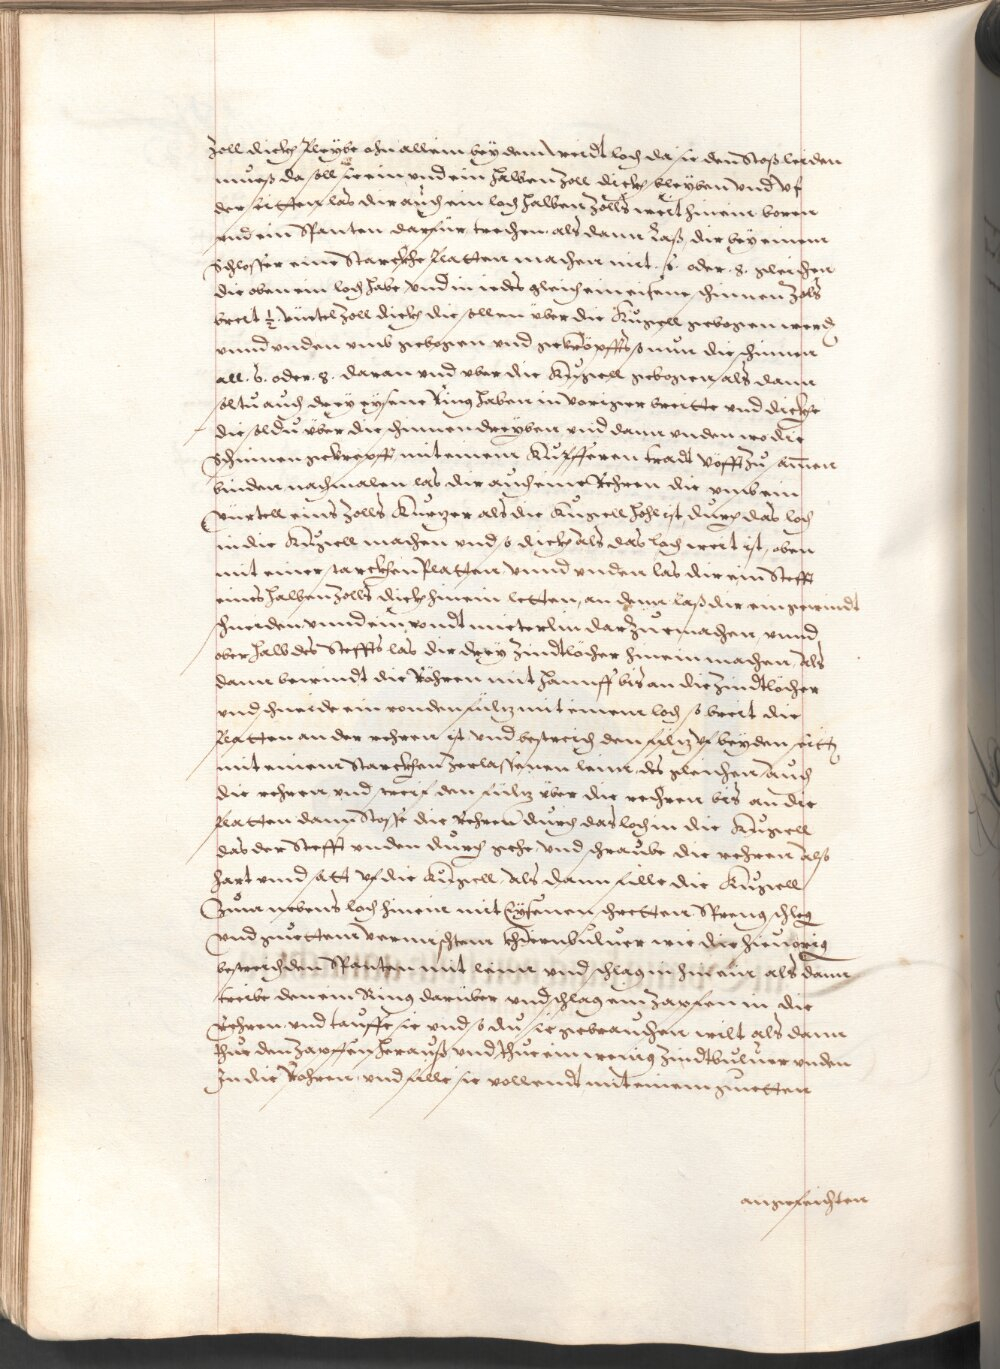 Zoll dickh bleybe ohn allein bey dem Weidtloch da sie den Stoß leiden
mueß da soll sie ein und ein halben Zoll dickh bleyben Und uf
der seitten las dir auch ein loch halben Zolls weit hinein boren
und ein Spunten darfür trechen als dann laß dir bey einem
Schlosser eine Starckhe Platten machen mit 6. oder 8. gleichen
die oben ein loch habe Und in iedes gleich ein eisene schinnen Zols
breit ½ Viertel Zoll dickh die sollen über die Kugell gebogen werden
unnd unden umb gebogen und gekröpfft so nun die schinnen
all 6. oder 8. daran und über die Kugell gebogen als dann
soltu auch drey eysene Ring haben in voriger breitte und dickhe
die soldu über die schinnen dreyben und dann unden wo die
Schinnen gekrepfft mit einem Kupfferen tradt wol zu samen
binden nachmalen las dir auch eine Rehren die umb ein
Viertell eins Zolls Kurtzer als die Kugell hohl ist durch das loch
in die Kugell machen und so dickh als das loch weit ist, oben
mit einer starckhen Platten unnd unden las dir ein Stefft
eines halben Zolls dickh hinein letten, an dem laß dir ein gewindt
schneiden unnd ein rondt mieterlin darzu machen, unnd
oberhalb des Steffts las dir drey Zindtlöcher hinein machen, Als
dann bewindt die Röhren mit hannff bis an die Zindtlöcher
und schneide ein ronden filtz mit einem loch so breit die
Platten an der rehren ist Und bestreich den filtz uf beyden seitten
mit einem Starckhen zerlassenen leim, des gleichen auch
die rehren und streif den filtz über die rehren bis an die
Platten dann Stosse die Rehren durch das loch in die Kugell
das der Stefft unden durch gehe, Und schraube die rehren also
hart unnd satt uf die Kugell, Als dann fille die Kugell
Zum nebens loch hinein mit Eysenen schretten Spreng schleg
und guettem vermischtem Khernbulver wie die hievorig
bestreich den Spunten mit leim und schlag in hinein als dann
treibe den ein Ring darüber und schlag ein zapfen in die
Rehren und tauffe sie und so du sie gebrauchen wilt als dann
thue den Zapffen herauß und thue ein wenig Zindtbulver unden
In die Röhren und fille sie vollendt mit einem guetten
angefeichten